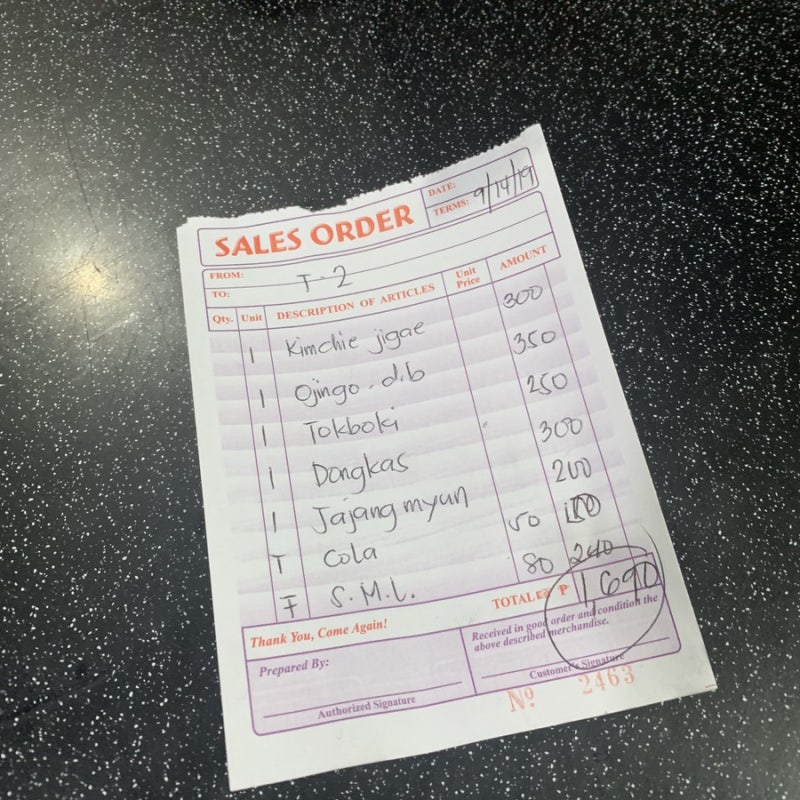 SALES ORDER
DATE: 9/14/19
TERMS:
FROM:
TO: T-2
Qty. Unit DESCRIPTION OF ARTICLES Unit Price AMOUNT
1 Kimchie jigae 300
1 Ojingo d.b 350
1 Tokboki 250
1 Dongkas 300
1 Jajang myun 200
T Cola 50
F S.M.L. 80 240
Thank You, Come Again! TOTAL P 1,690
Prepared By:
Authorized Signature
Received in good order and condition the
above described merchandise.
Customer's Signature
Nº 2463